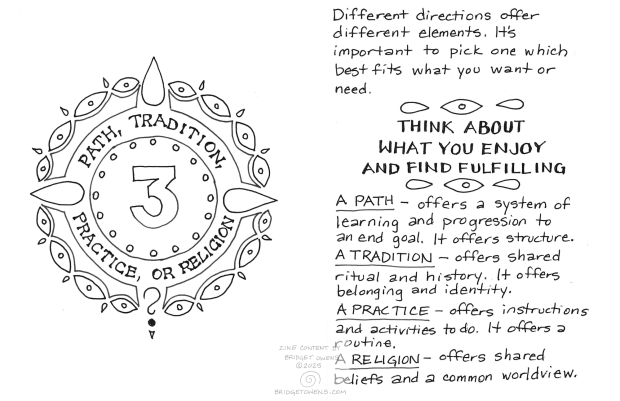 PATH, TRADITION,
3
PRACTICE, OR RELIGION
?
Different directions offer
different elements. It's
important to pick one which
best fits what you want or
need.
THINK ABOUT
WHAT YOU ENJOY
AND FIND FULFILLING
A PATH – offers a system of
learning and progression to
an end goal. It offers structure.
A TRADITION – offers shared
ritual and history. It offers
belonging and identity.
A PRACTICE – offers instructions
and activities to do. It offers a
routine.
A RELIGION – offers shared
beliefs and a common worldview.
ZINE CONTENT BY
BRIDGET OWENS
©2025
BRIDGETOWENS.COM